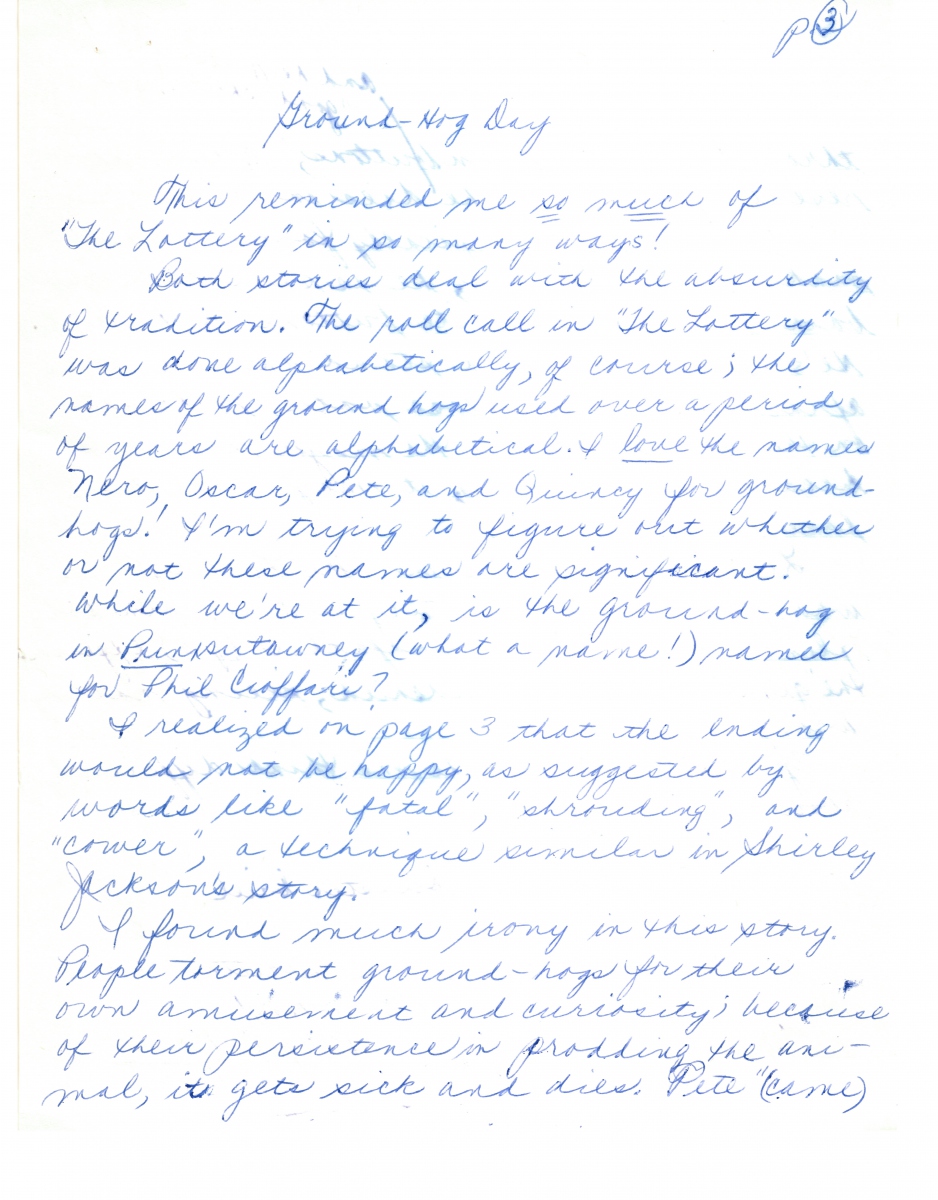 p. 3
Ground-Hog Day
This reminded me so much of
"The Lottery" in so many ways!
Both stories deal with the absurdity
of tradition. The roll call in "The Lottery"
was done alphabetically, of course; the
names of the ground hogs used over a period
of years are alphabetical. I love the names
Nero, Oscar, Pete, and Quincy for ground-
hogs! I'm trying to figure out whether
or not these names are significant.
While we're at it, is the ground-hog
in Punxsutawney (what a name!) named
for Phil Cioffari?
I realized on page 3 that the ending
would not be happy, as suggested by
words like "fatal", "shrouding", and
"cower", a technique similar in Shirley
Jackson's story.
I found much irony in this story.
People torment ground-hogs for their
own amusement and curiosity; because
of their persistence in prodding the ani-
mal, it gets sick and dies. Pete "(came)